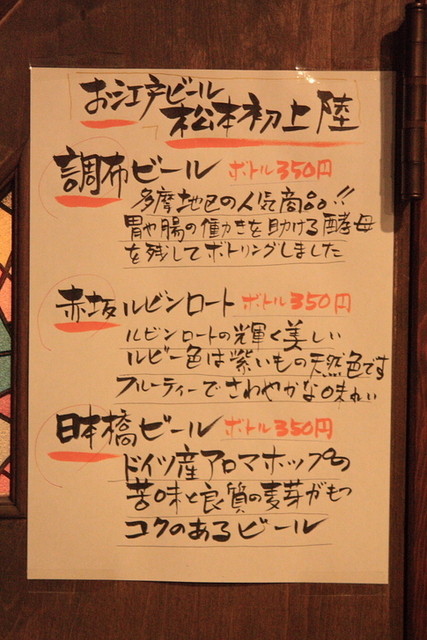 お江戸ビール
松本初上陸
調布ビール ボトル350円
多摩地区の人気商品!!
胃や腸の働きを助ける酵母
を残してボトリングしました
赤坂ルビンロート ボトル350円
ルビンロートの輝く美しい
ルビー色は紫いもの天然色です
フルーティーでさわやかな味わい
日本橋ビール ボトル350円
ドイツ産アロマホップの
苦味と良質の麦芽がもつ
コクのあるビール